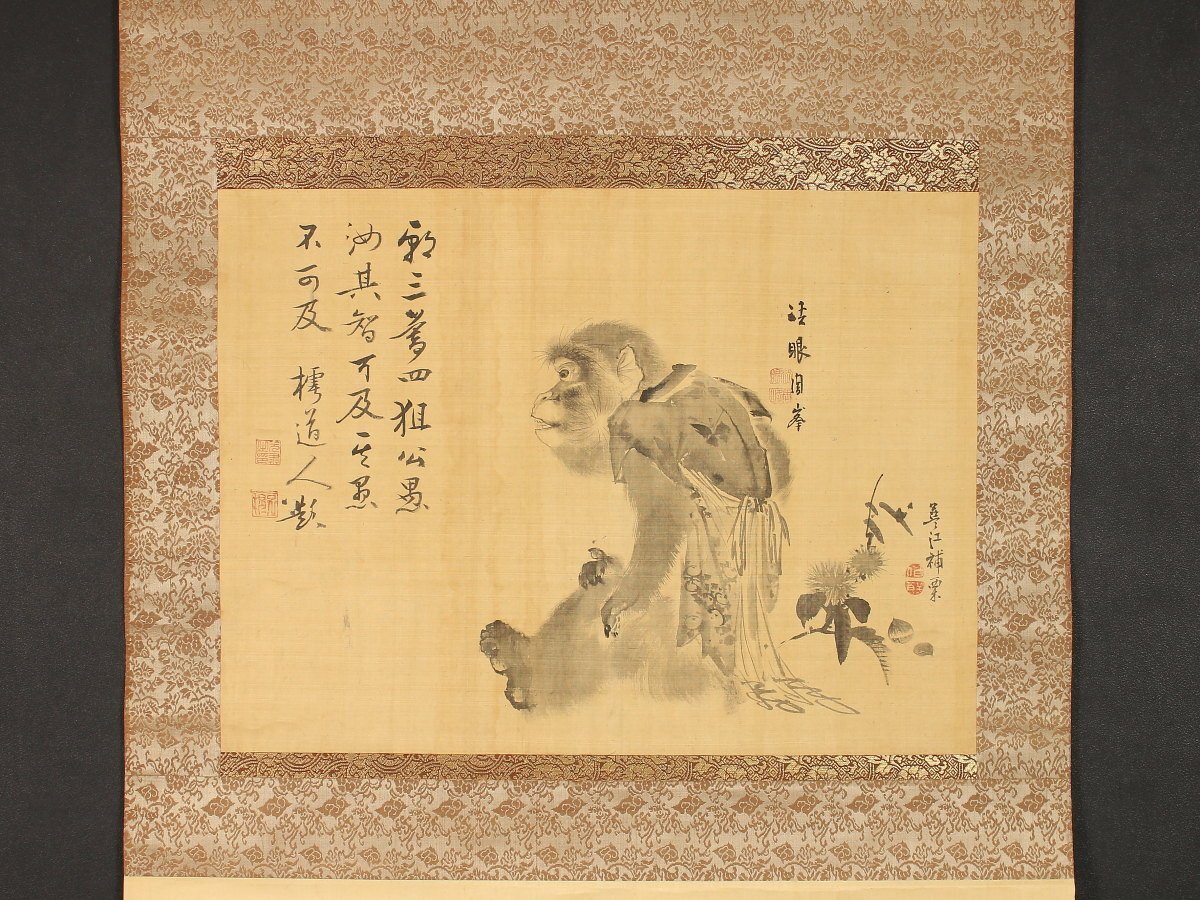 江補栗
法眼周峯
朝三暮四狙公愚
汝其智可及其愚
不可及 樗道人